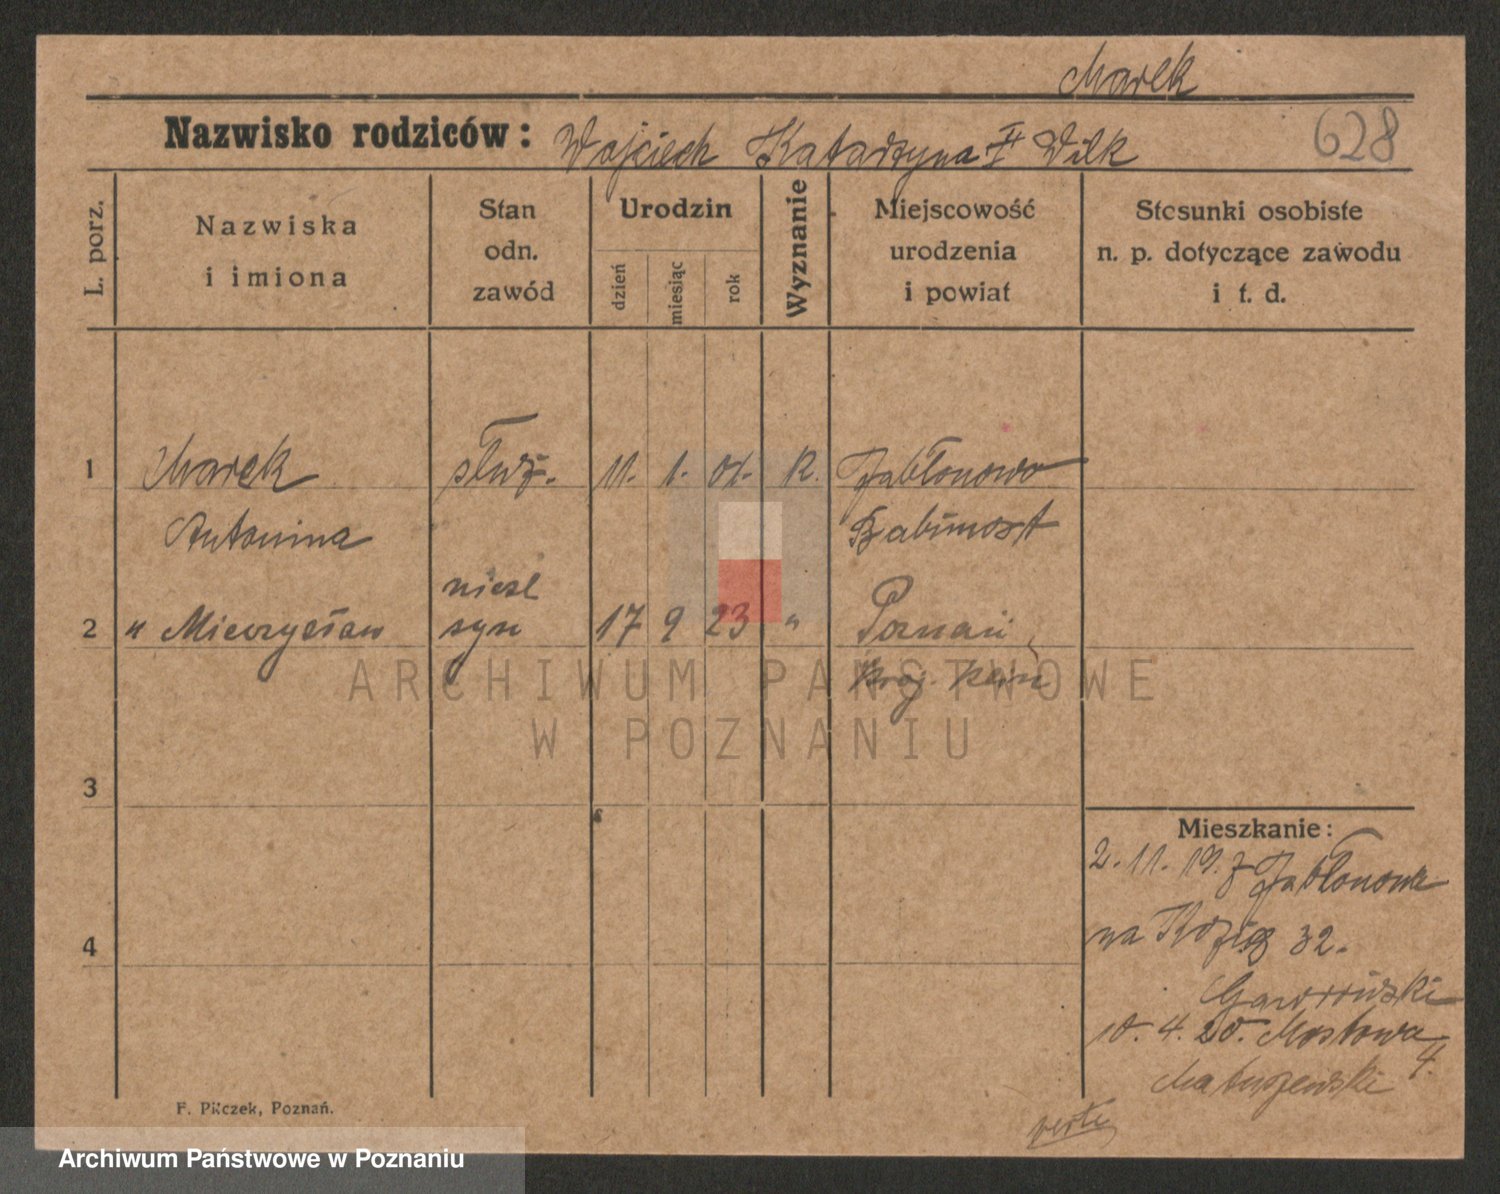 Marek
Nazwisko rodziców: Wojciech Katarzyna Wilk
628
L. porz.
Nazwiska
i imiona
Stan
odn.
zawód
Urodzin
dzień
miesiąc
rok
Wyznanie
Miejscowość
urodzenia
i powiat
Stosunki osobiste
n. p. dotyczące zawodu
i t. d.
1 Marek służ. 11. 1. 01. K. Jabłonowo
Antonina Babimost
nieśl
2 " Mieczysław syn 17 9 23 " Poznań
3
4
Mieszkanie:
2. 11. 19. z Jabłonowa
na Kozią 32.
10. 4. 20. Mostowa 4.
Matuszewski
verte
F. Pilczek, Poznań.
ARCHIWUM PAŃSTWOWE
W POZNANIU
Archiwum Państwowe w Poznaniu